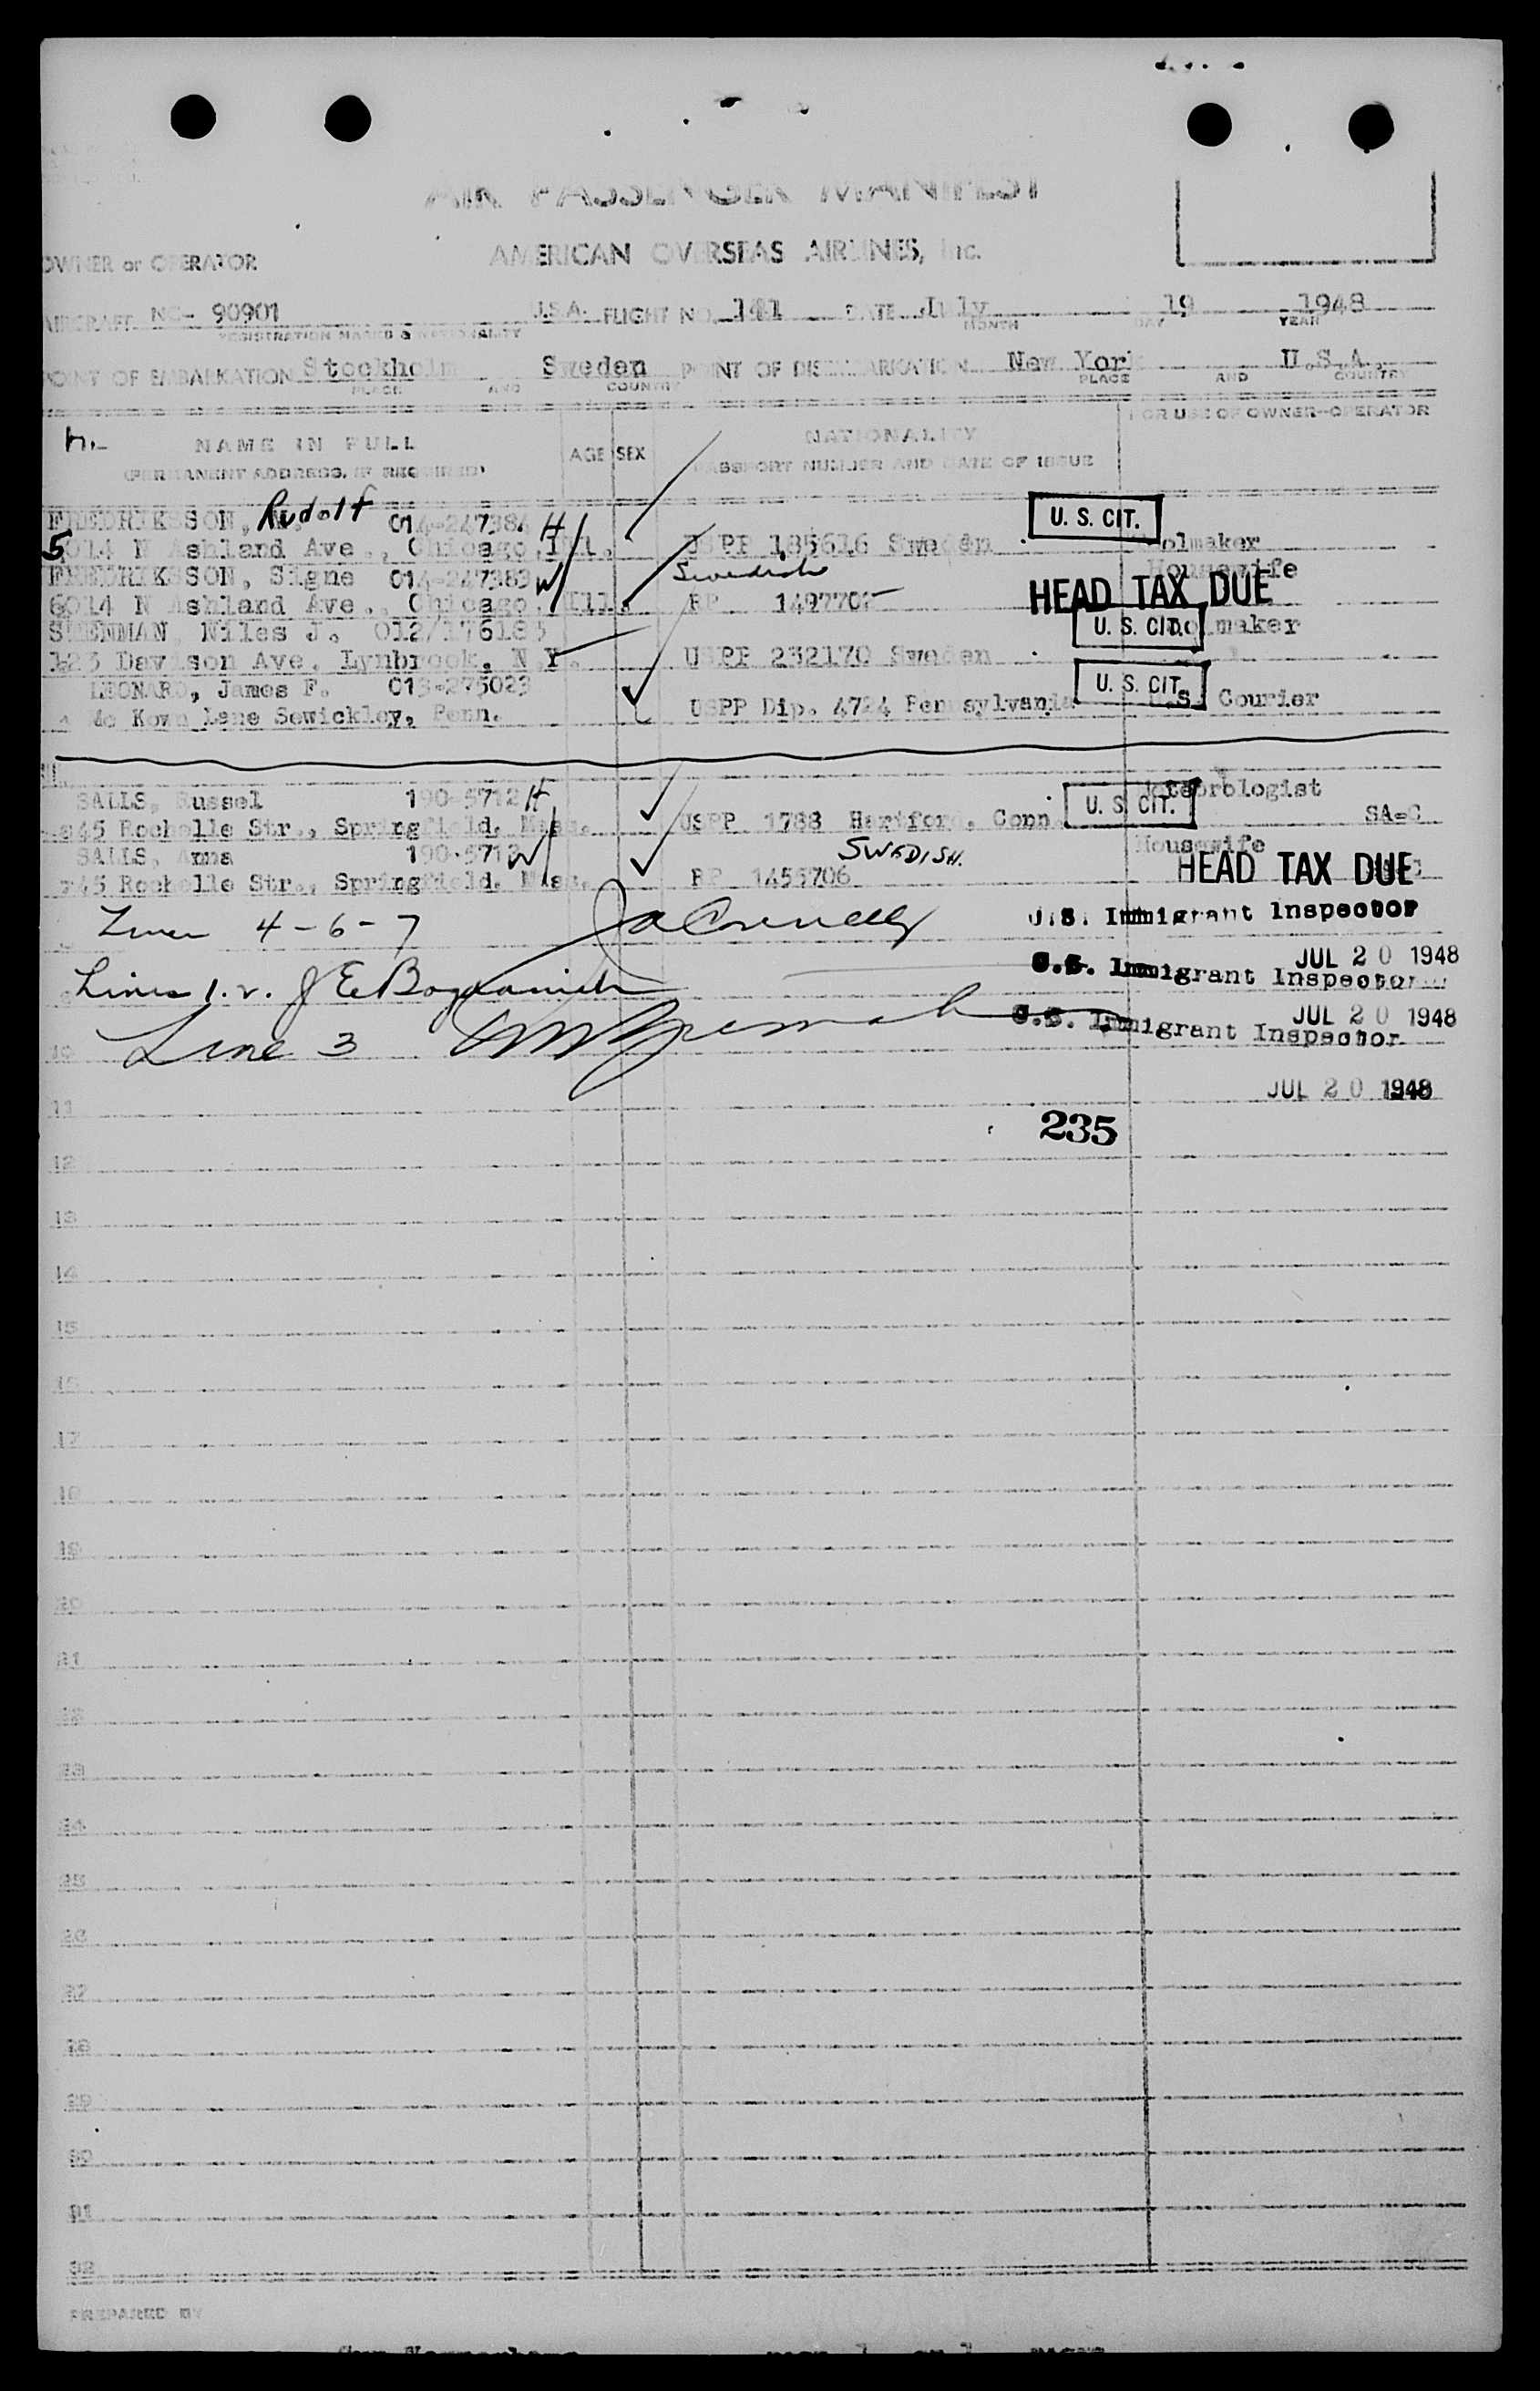 AIR PASSENGER MANIFEST
OWNER or OPERATOR AMERICAN OVERSEAS AIRLINES, Inc.
AIRCRAFT NC- 90901 U.S.A. FLIGHT NO. 141 DATE July 19 1948
REGISTRATION MARKS & NATIONALITY MONTH DAY YEAR
POINT OF EMBARKATION Stockholm Sweden POINT OF DISEMBARKATION New York U.S.A.
PLACE AND COUNTRY PLACE AND COUNTRY
FOR USE OF OWNER-OPERATOR
NAME IN FULL AGE SEX NATIONALITY
(PERMANENT ADDRESS, IF REQUIRED) PASSPORT NUMBER AND DATE OF ISSUE
FREDRIKSSON, Rudolf 014-247384 H U. S. CIT.
5014 N Ashland Ave., Chicago, Ill. USPP 185616 Sweden Toolmaker
FREDRIKSSON, Signe 014-247383 W Swedish Housewife
6014 N Ashland Ave., Chicago, Ill. RP HEAD TAX DUE
Niles J. U. S. CIT. Toolmaker
123 Davison Ave. Lynbrook, N.Y. USPP 232170 Sweden
LEONARD, James F. 013-275023 U. S. CIT.
Mc Kown Lane Sewickley, Penn. USPP Dip. 4724 Pennsylvania U.S. Courier
SALLS, Russel 190-5712 H U. S. CIT. Meteorologist
45 Rochelle Str., Springfield, Mass. USPP 1788 Hartford, Conn. SA-C
SALLS, Anna W SWEDISH. Housewife
45 Rochelle Str., Springfield, Mass. RP HEAD TAX DUE
Lines 4-6-7 U.S. Immigrant Inspector
JUL 20 1948
Lines 1. 2. U.S. Immigrant Inspector
JUL 20 1948
Line 3 U.S. Immigrant Inspector
11 JUL 20 1948
235
12
13
14
15
16
17
18
19
20
21
22
23
24
25
26
27
28
29
30
31
32
PREPARED BY